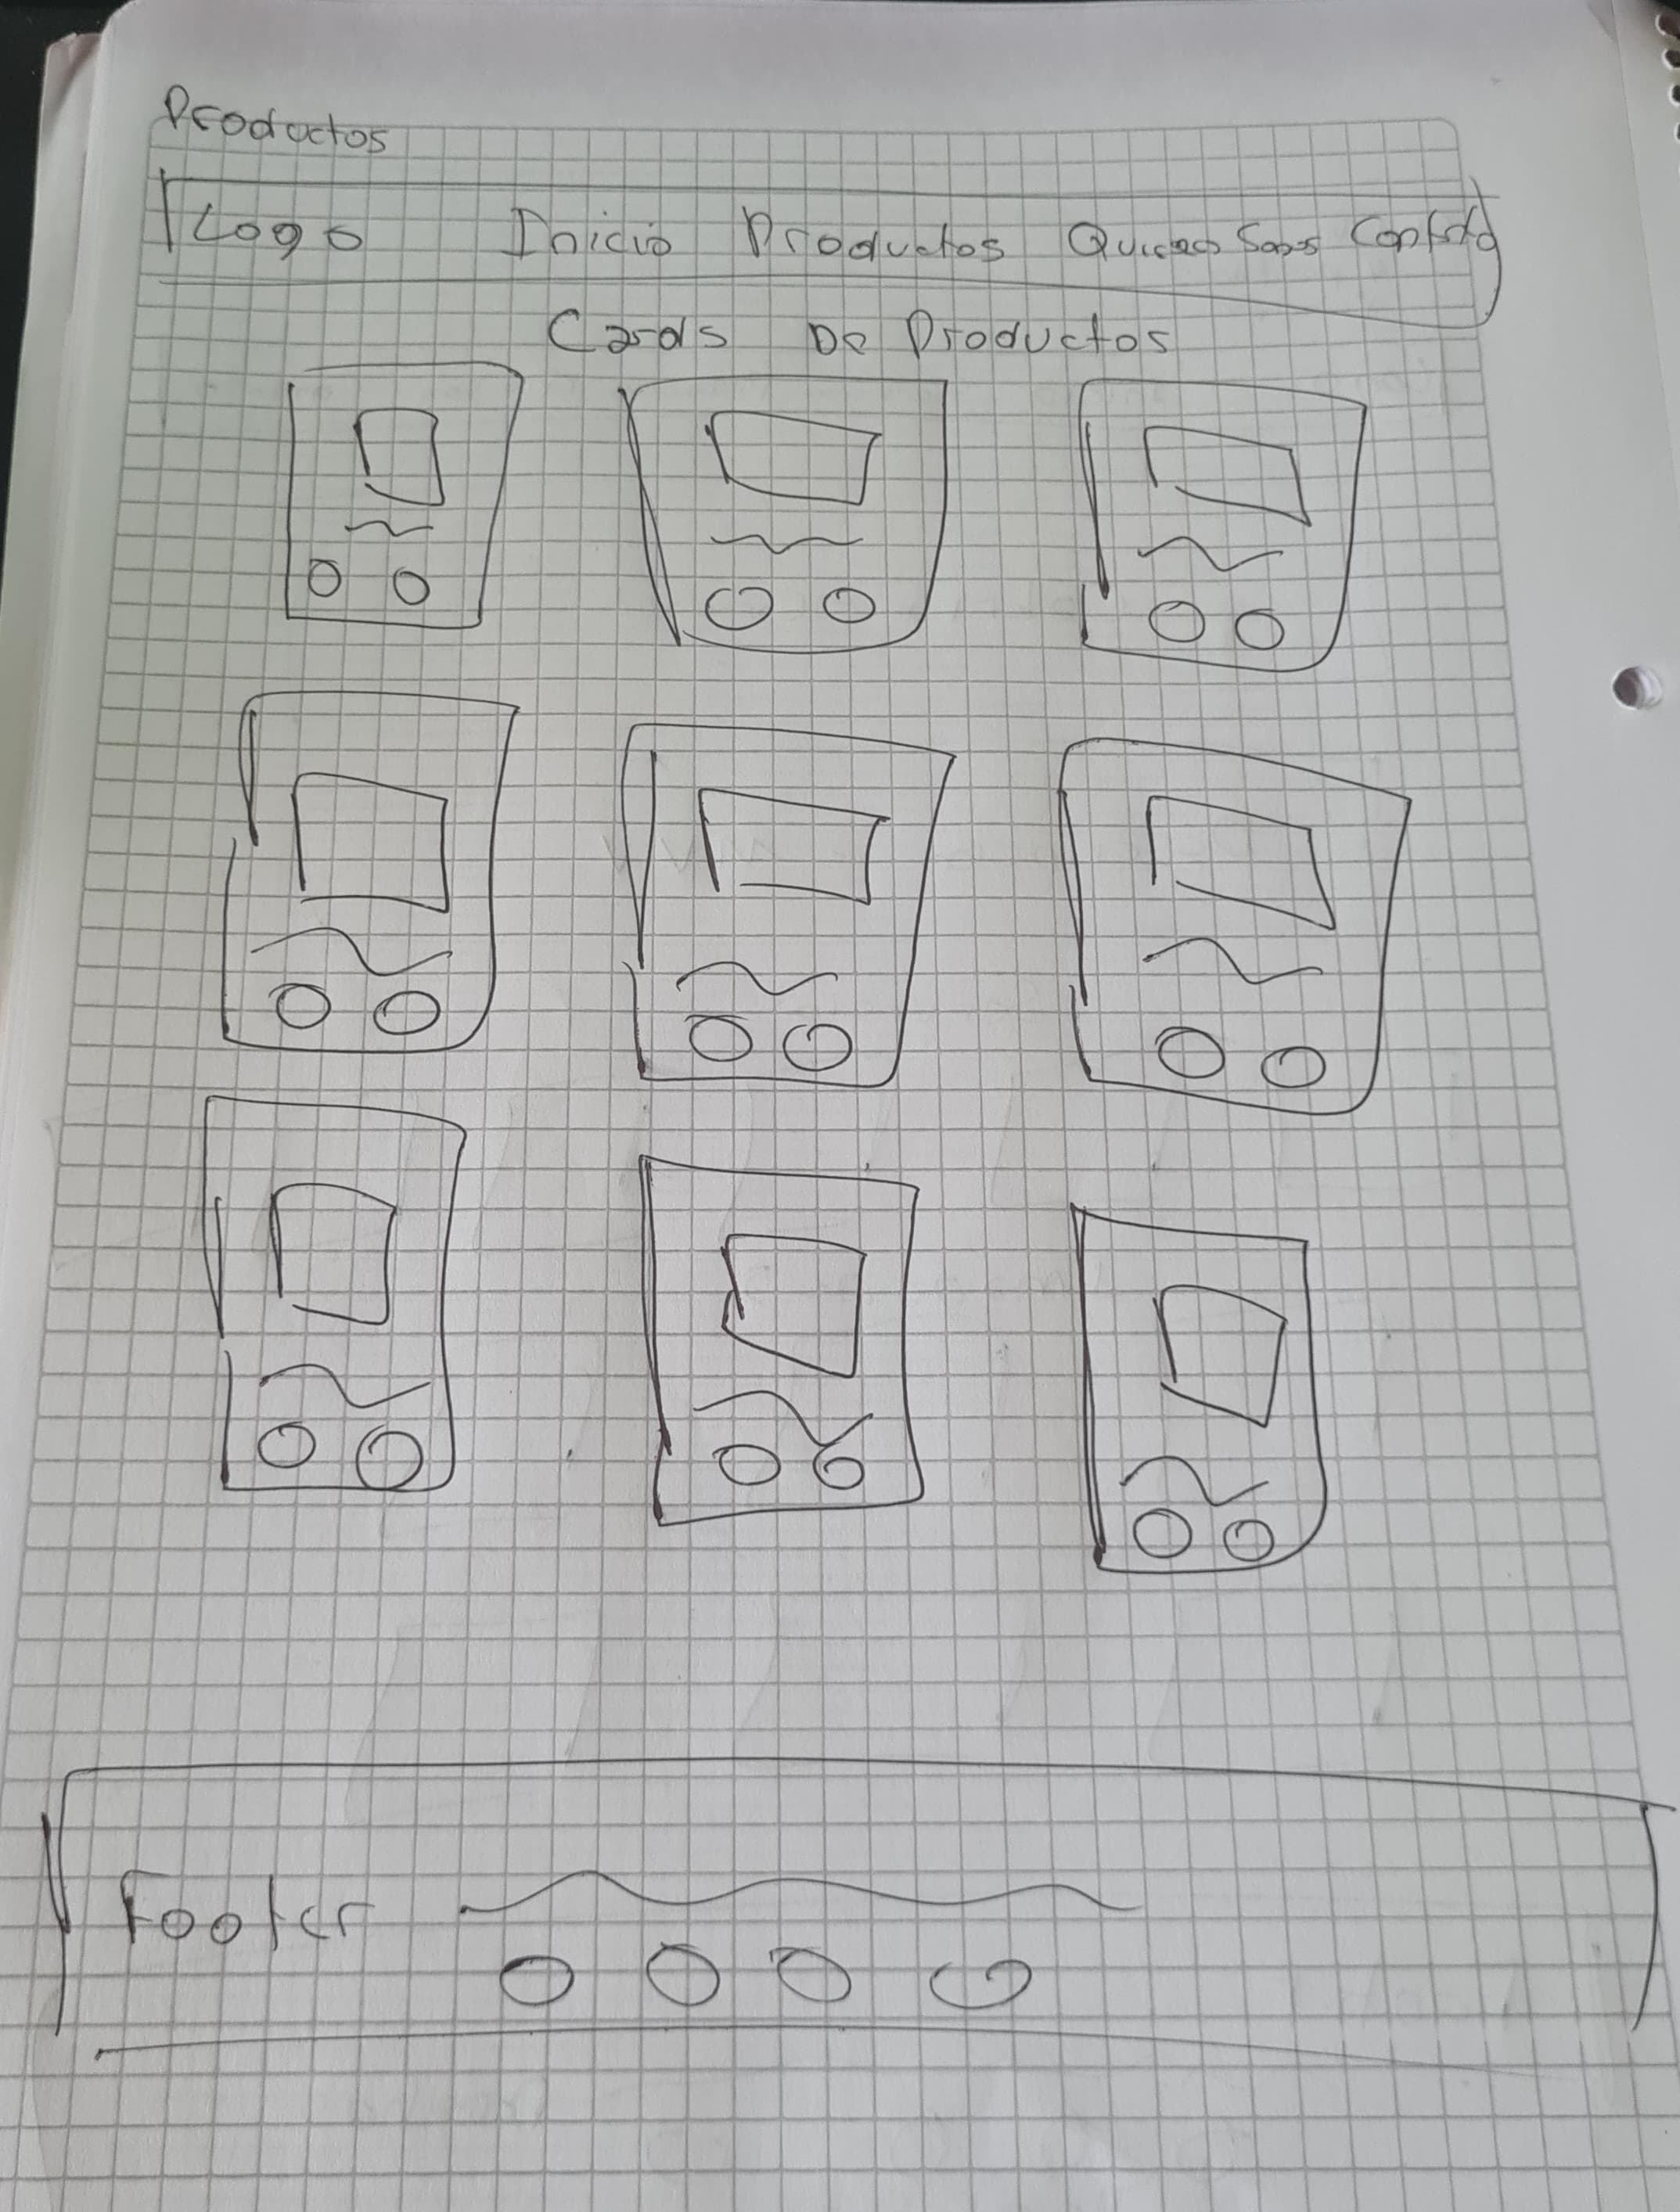 Productos
Logo Inicio Productos Quienes Somos Contacto
Cards De Productos
Footer